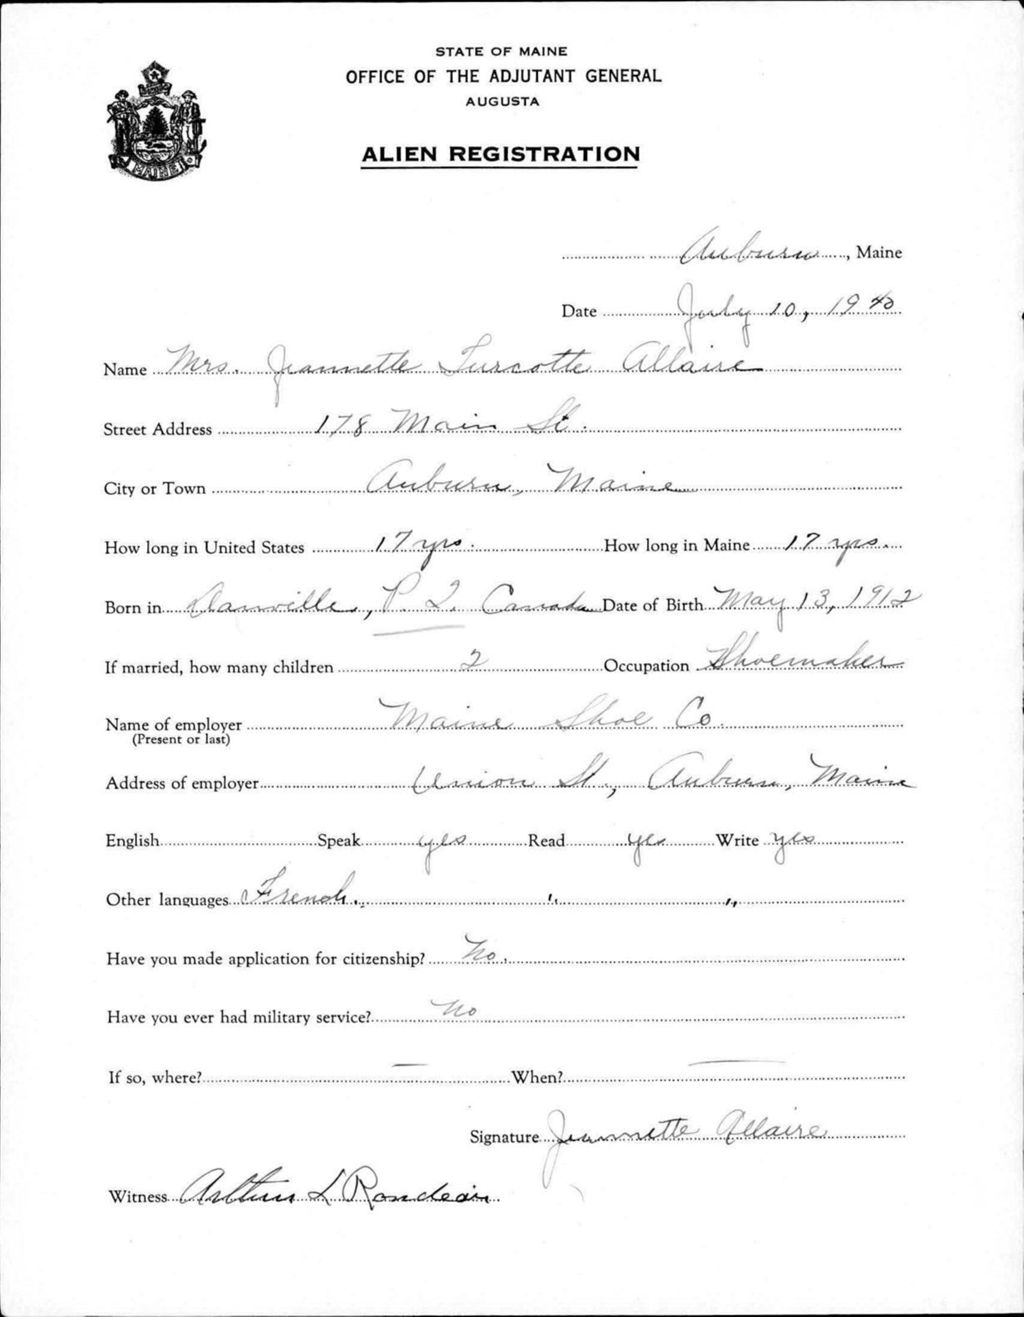 STATE OF MAINE
OFFICE OF THE ADJUTANT GENERAL
AUGUSTA
ALIEN REGISTRATION
MAINE
Auburn, Maine
Date July 10, 1940
Name Mrs. Jeannette Turcotte Allaire
Street Address 178 Main St.
City or Town Auburn, Maine
How long in United States 17 yrs. How long in Maine 17 yrs.
Born in Danville, P. Q. Canada Date of Birth May 13, 1912
If married, how many children 2 Occupation Shoemaker
Name of employer Maine Shoe Co.
(Present or last)
Address of employer Union St., Auburn, Maine
English Speak yes Read yes Write yes
Other languages French. " "
Have you made application for citizenship? No.
Have you ever had military service? No
If so, where? — When? —
Signature Jeannette Allaire
Witness Arthur L Rondeau